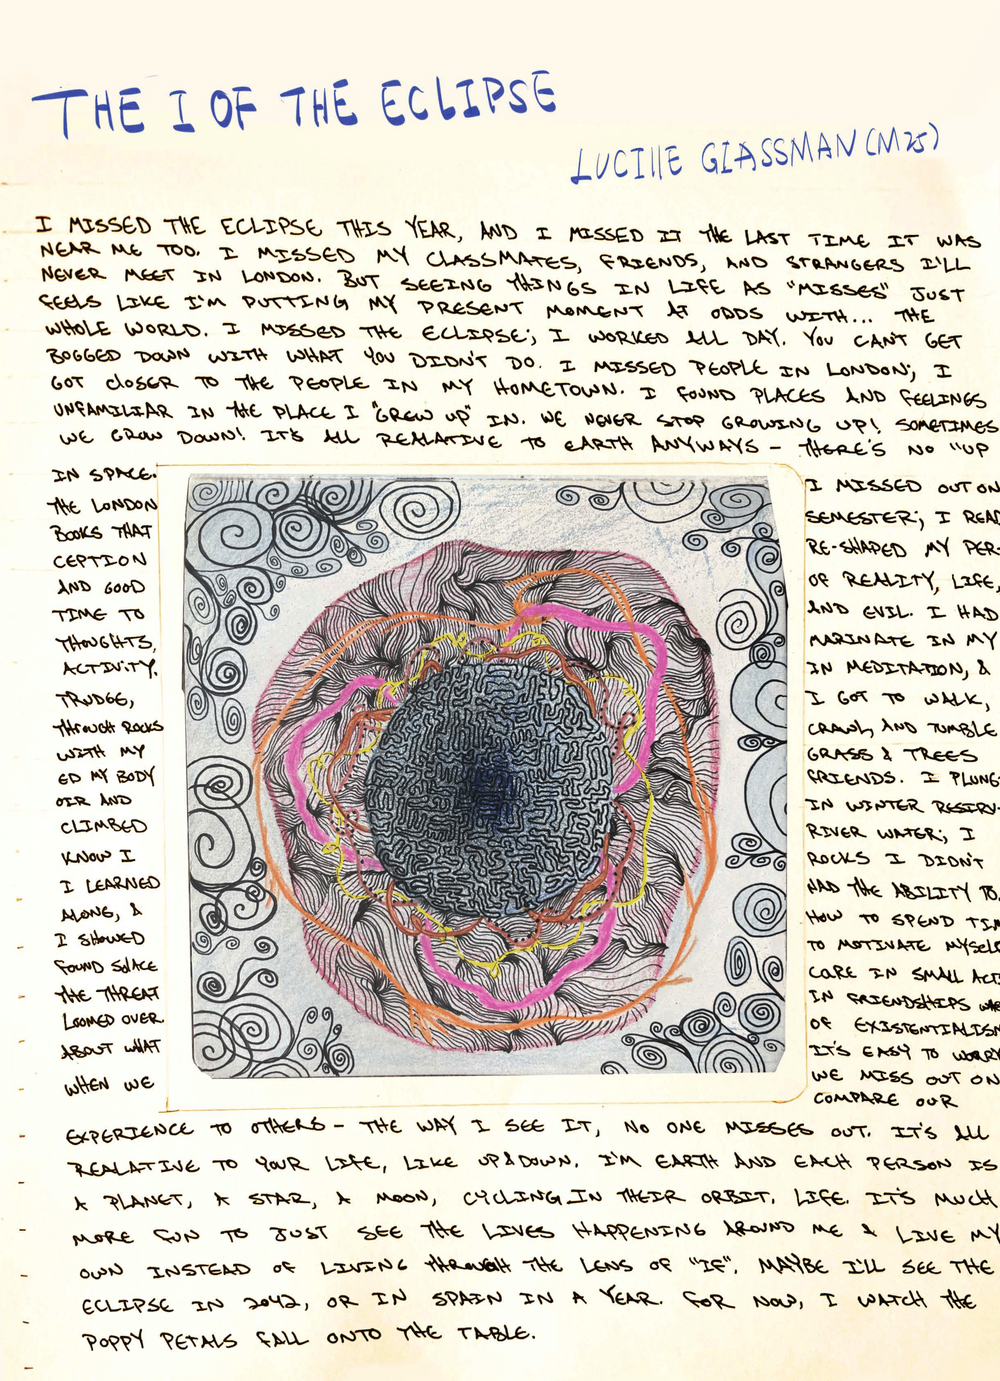 THE I OF THE ECLIPSE
LUCIllE GlASSMAN (M25)
I MISSED THE ECLIPSE THIS YEAR, AND I MISSED IT THE LAST TIME IT WAS
NEAR ME TOO. I MISSED MY CLASSMATES, FRIENDS, AND STRANGERS I'LL
NEVER MEET IN LONDON. BUT SEEING THINGS IN LIFE AS "MISSES" JUST
FEELS LIKE I'M PUTTING MY PRESENT MOMENT AT ODDS WITH... THE
WHOLE WORLD. I MISSED THE ECLIPSE; I WORKED ALL DAY. YOU CAN'T GET
BOGGED DOWN WITH WHAT YOU DIDN'T DO. I MISSED PEOPLE IN LONDON; I
GOT CLOSER TO THE PEOPLE IN MY HOMETOWN. I FOUND PLACES AND FEELINGS
UNFAMILIAR IN THE PLACE I "GREW UP" IN. WE NEVER STOP GROWING UP! SOMETIMES
WE GROW DOWN! IT'S ALL REALATIVE TO EARTH ANYWAYS - THERE'S NO "UP
IN SPACE. I MISSED OUT ON
THE LONDON SEMESTER; I READ
BOOKS THAT RE-SHAPED MY PER-
CEPTION OF REALITY, LIFE,
AND GOOD AND EVIL. I HAD
TIME TO MARINATE IN MY
THOUGHTS, IN MEDITATION, &
ACTIVITY. I GOT TO WALK,
TRUDGE, CRAWL, AND TUMBLE
THROUGH ROCKS GRASS & TREES
WITH MY FRIENDS. I PLUNG-
ED MY BODY IN WINTER RESERV-
OIR AND RIVER WATER; I
CLIMBED ROCKS I DIDN'T
KNOW I HAD THE ABILITY TO.
I LEARNED HOW TO SPEND TIM
ALONG, & TO MOTIVATE MYSELF
I SHOWED CARE IN SMALL ACT
FOUND SOLACE IN FRIENDSHIPS
THE THREAT OF EXISTENTIALISM
LOOMED OVER. IT'S EASY TO WORRY
ABOUT WHAT WE MISS OUT ON
WHEN WE COMPARE OUR
EXPERIENCE TO OTHERS - THE WAY I SEE IT, NO ONE MISSES OUT. IT'S ALL
REALATIVE TO YOUR LIFE, LIKE UP & DOWN. I'M EARTH AND EACH PERSON IS
A PLANET, A STAR, A MOON, CYCLING IN THEIR ORBIT. LIFE. IT'S MUCH
MORE FUN TO JUST SEE THE LIVES HAPPENING AROUND ME & LIVE MY
OWN INSTEAD OF LIVING THROUGH THE LENS OF "IF". MAYBE I'LL SEE THE
ECLIPSE IN 2042, OR IN SPAIN IN A YEAR. FOR NOW, I WATCH THE
POPPY PETALS FALL ONTO THE TABLE.